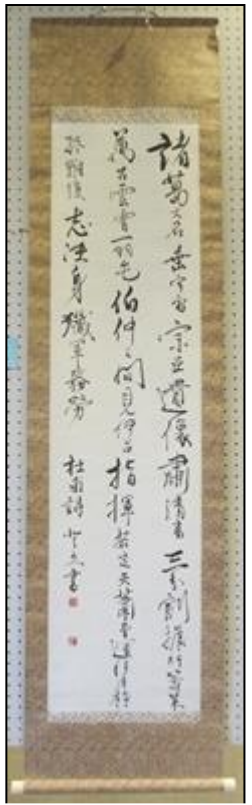 諸葛大名垂宇宙宗臣遺像肅清高三分割據紆籌策
萬古雲霄一羽毛伯仲之間見伊呂指揮若定失蕭曹運移漢祚
終難復志決身殲軍務勞 杜甫詩 書